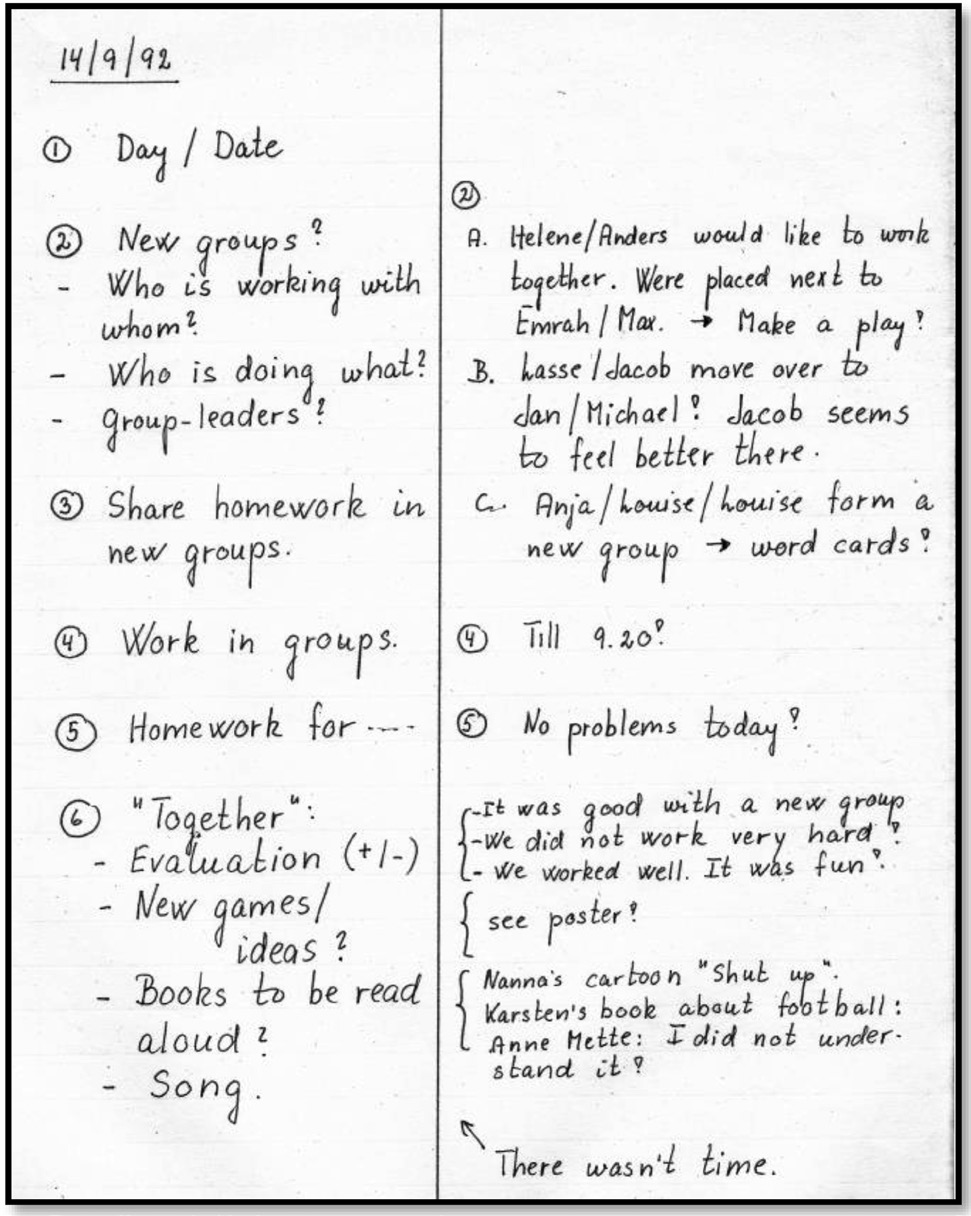 14/9/92
① Day / Date
② New groups?
- Who is working with
whom?
- Who is doing what?
- group-leaders?
③ Share homework in
new groups.
④ Work in groups.
⑤ Homework for ----
⑥ "Together":
- Evaluation (+/-)
- New games/
ideas?
- Books to be read
aloud?
- Song.
②
A. Helene/Anders would like to work
together. Were placed next to
Emrah/Max. → Make a play!
B. Lasse/Jacob move over to
Jan/Michael! Jacob seems
to feel better there.
C. Anja/Louise/Louise form a
new group → word cards!
④ Till 9.20!
⑤ No problems today!
- It was good with a new group
- We did not work very hard!
- We worked well. It was fun!
see poster!
Nanna's cartoon "Shut up".
Karsten's book about football:
Anne Mette: I did not under-
stand it!
There wasn't time.